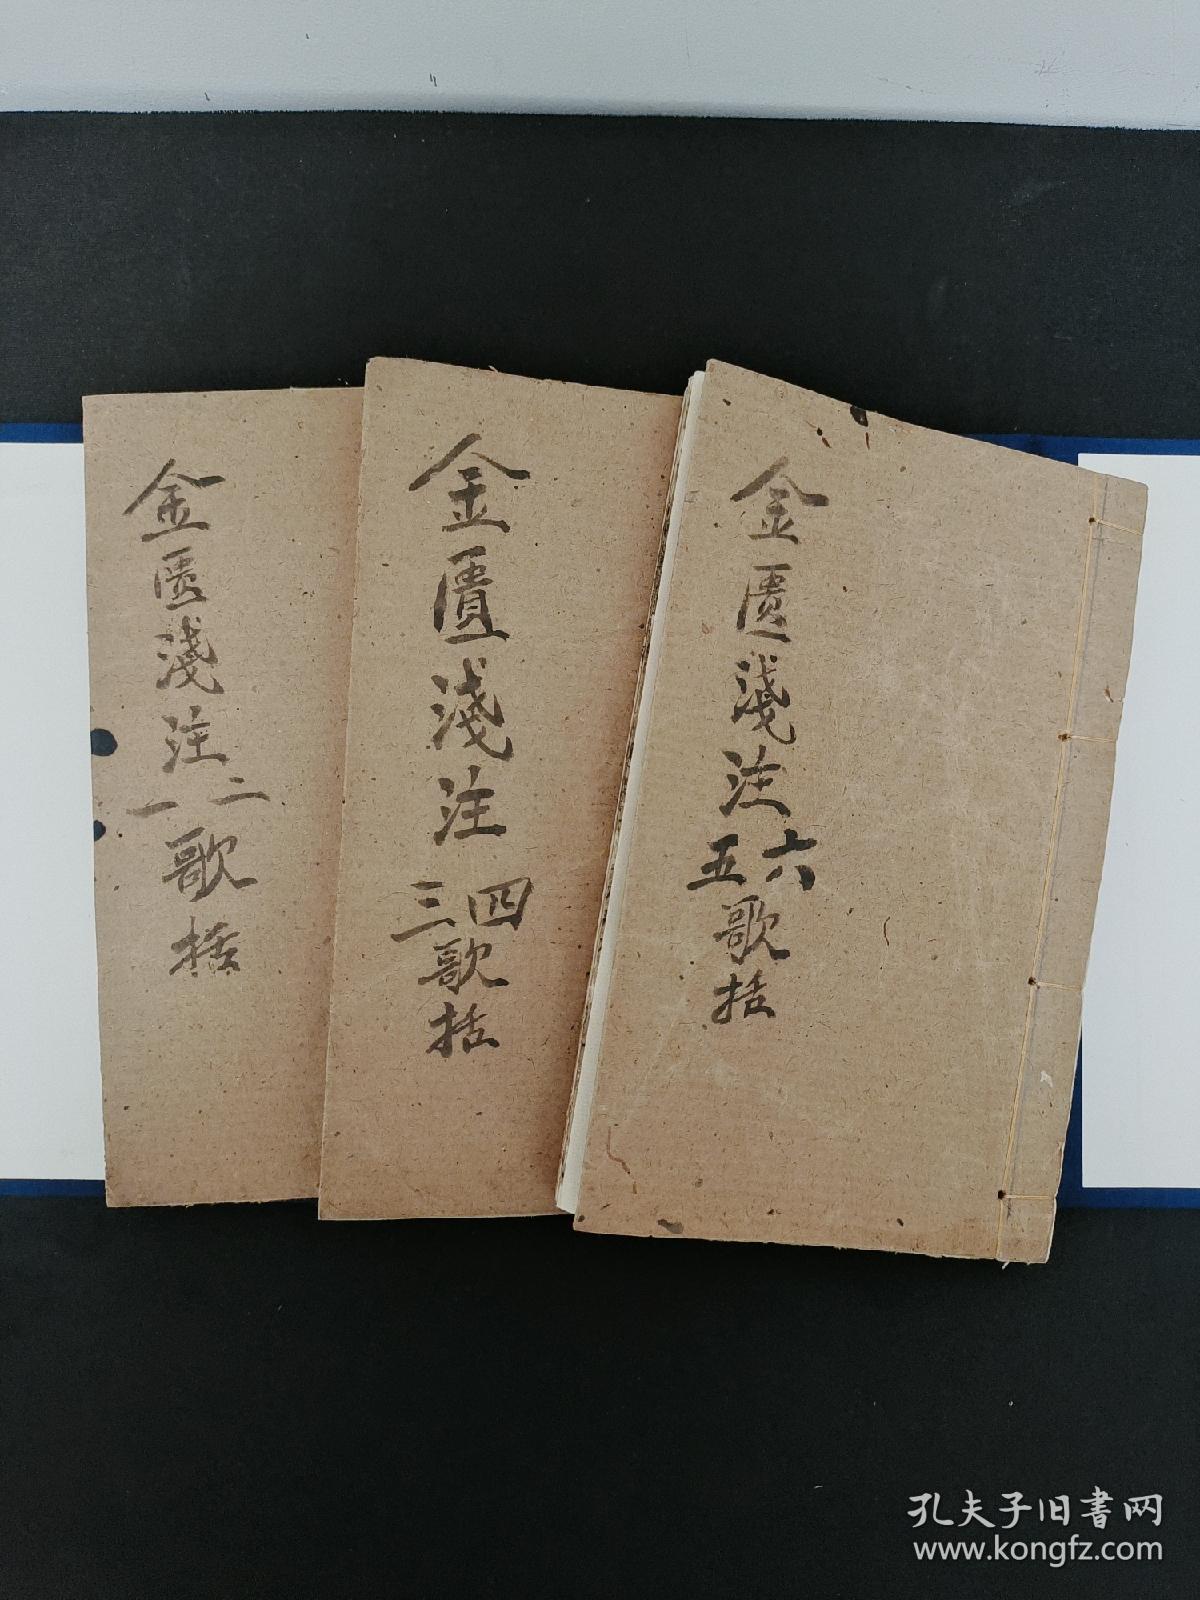 金匱淺注
二一
歌括
金匱淺注
四三
歌括
金匱淺注
六五
歌括
孔夫子旧書网
www.kongfz.com